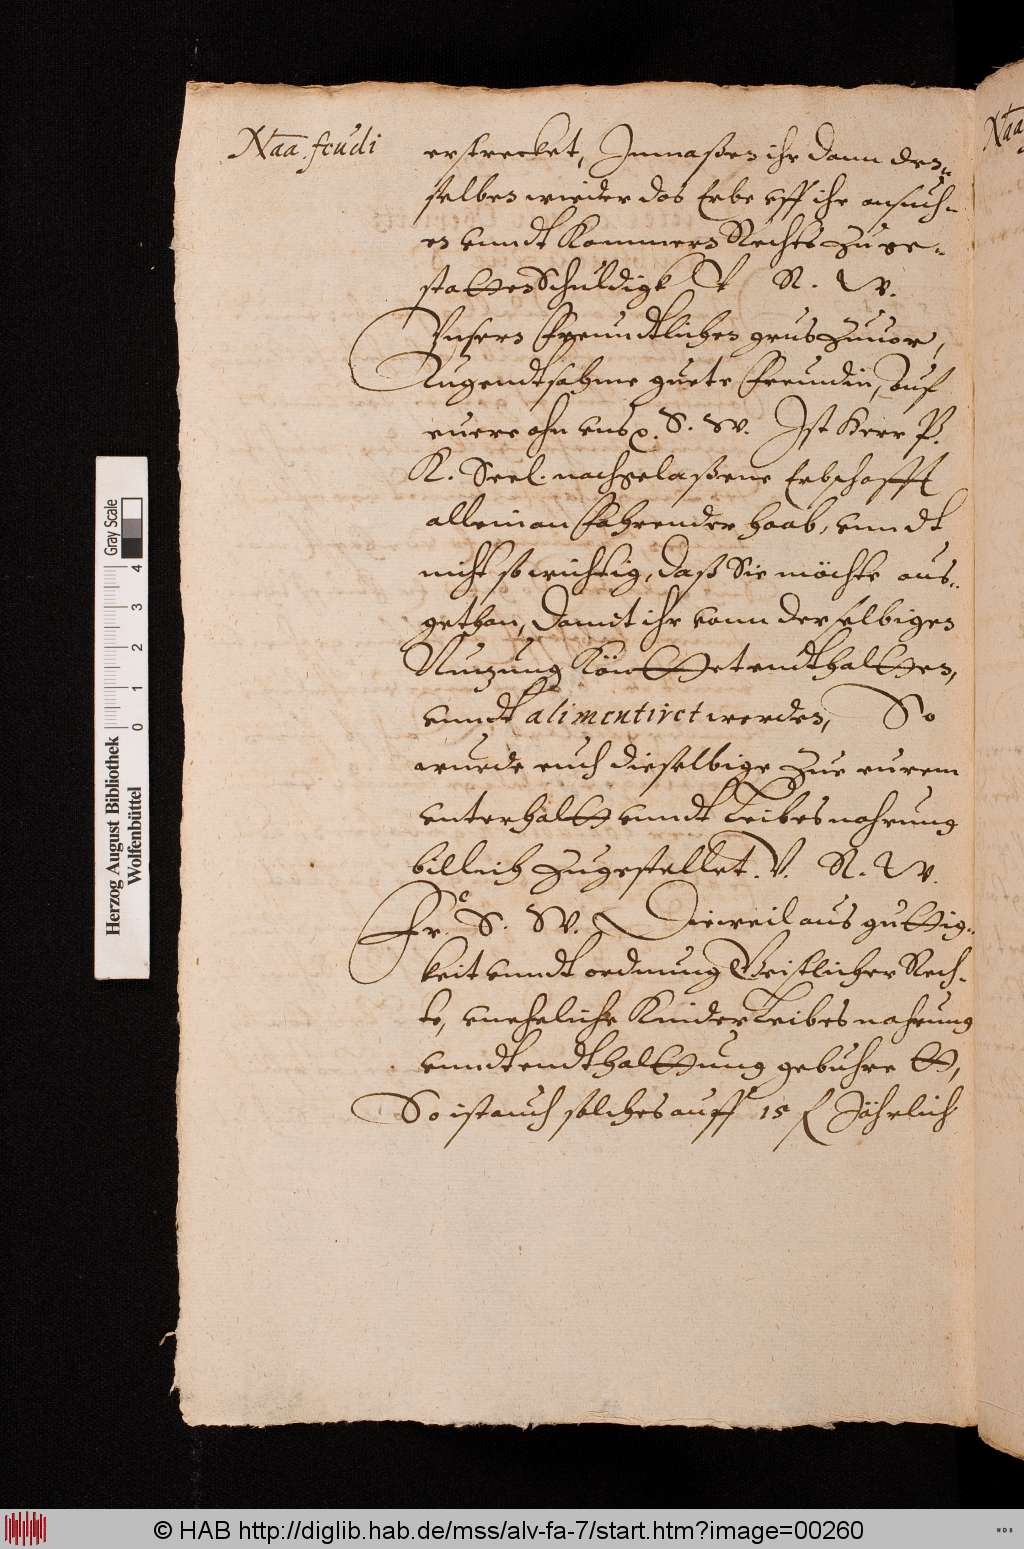 Naa. feudi
erstrecket, Inmaßen ihr dann den„
selben wieder das Erbe uff ihr ansuch„
en unndt Kommers Rechts zu ge„
statten schuldigk V. R. W.
Unsern freundtlichen grus zuuor,
Tugendtsahme guete freundin, Auf
euere ahn uns p. S. W. Ist Herr P.
K. Seel. nachgelaßene Erbschafft
allein an fahrender Haab, unndt
nicht so wichtig, daß Sie möchte aus„
gethan, damit ihr vonn derselbigen
Nutzung Könttet endthalten,
unndt alimentiret werden, So
wurde euch dieselbige zue eurem
unterhaltt unndt Leibes nahrung
billich zugestellet. V. R. W.
Fr. S. W. Dieweil aus guttig„
keit unndt ordnung Geistlicher Rech„
te, uneheliche Kinder Leibes nahrung
unndt endthalttung gebuhrett,
So ist auch solches auff 15 fl Jährlich
Herzog August Bibliothek
Wolfenbüttel
0 1 2 3 4
Gray Scale
© HAB http://diglib.hab.de/mss/alv-fa-7/start.htm?image=00260